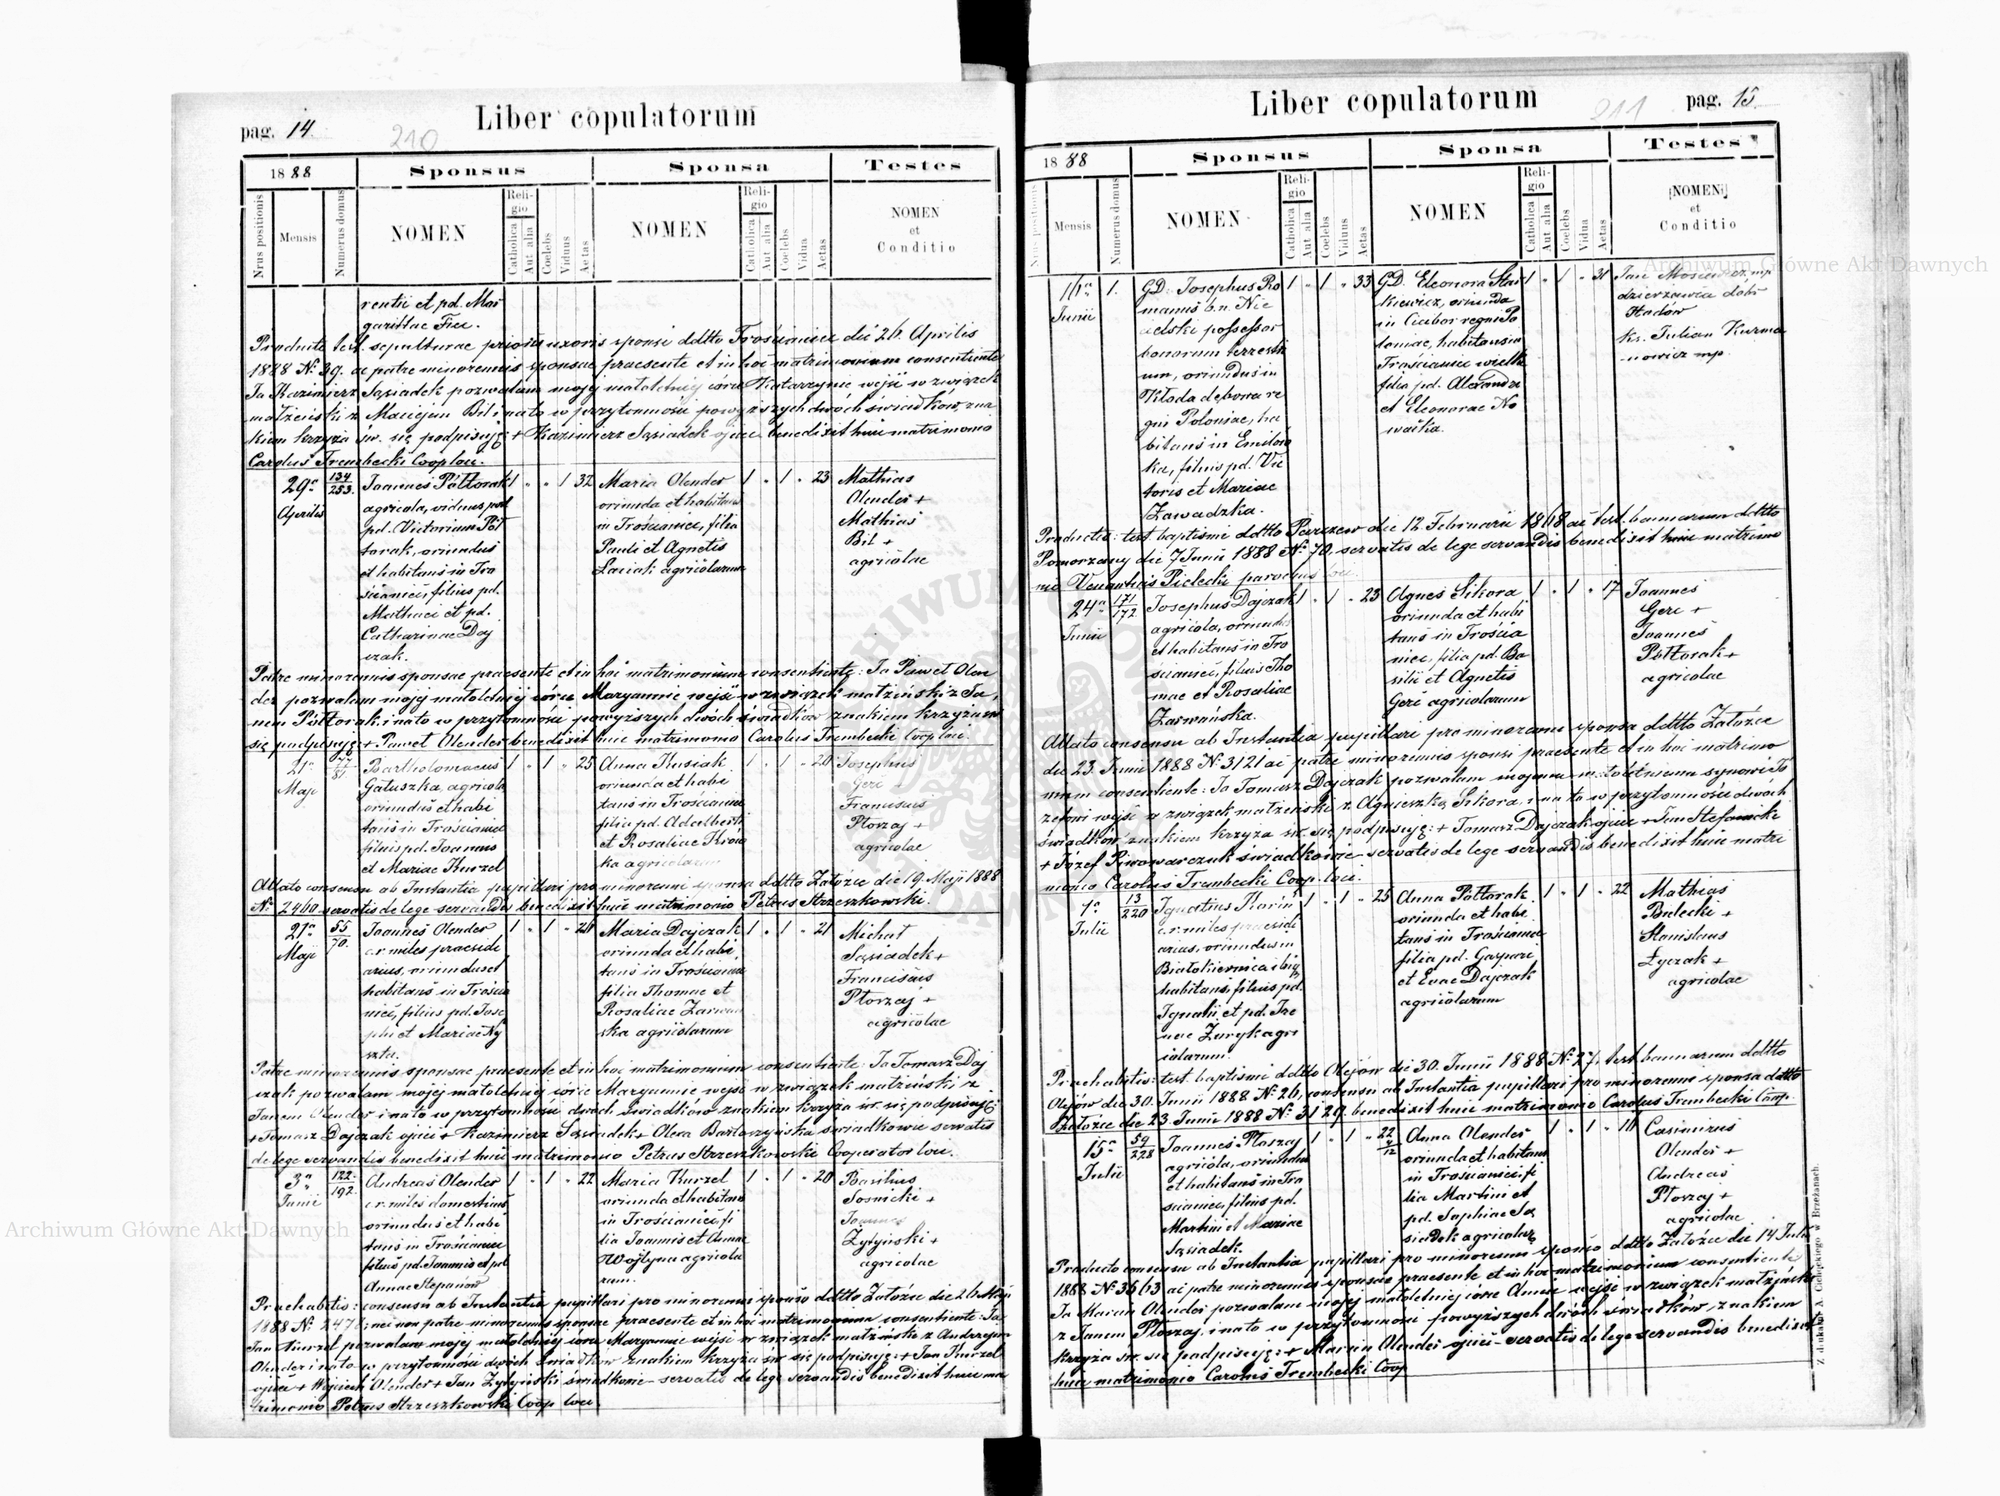 Liber copulatorum
pag. 14.
210
1888
Sponsus
Sponsa
Testes
Nrus positionis
Mensis
Numerus domus
NOMEN
Religio
Catholica
Aut alia
Coelebs
Viduus
Aetas
NOMEN
Religio
Catholica
Aut alia
Coelebs
Vidua
Aetas
NOMEN
et
Conditio
rentii et pd. Mar
garithae
Producto test. sepulturae prioris uxoris sponsi ddtto Trościaniec die 26. Aprilis
1888 Nº 29. ac patre minorennis sponsae praesente et in hoc matrimonium consentiente
Ja Kazimierz Sąsiadek pozwalam mojej małoletniej córce Katarzynie wejść w związek
małżeński z Maciejem Bil i na to w przytomności powyższych dwóch świadków, zna
kiem krzyża św. się podpisuję + Kazimierz Sąsiadek ojciec benedixit huic matrimonio
Carolus Trembecki Coop loci.
29ª
Aprilis
134
253.
Joannes Półtorak
agricola, viduus post
pd. Victoriam Pół
torak, oriundus
et habitans in Tro
ścianiec, filius pd.
Mathaei et pd.
Catharinae Daj
czak.
1 " " 1 32
Maria Olender
oriunda et habitans
in Trościaniec, filia
Pauli et Agnetis
Łaciak agricolarum
1 " 1 " 23
Mathias
Olender +
Mathias
Bil +
agricolae
Patre minorennis sponsae praesente et in hoc matrimonium consentiente: Ja Paweł Olen
der pozwalam mojej małoletniej córce Maryannie wejść w związek małżeński z Ja
nem Półtorak, i na to w przytomności powyższych dwóch świadków znakiem krzyża św
się podpisuję + Paweł Olender benedixit huic matrimonio Carolus Trembecki Coop loci.
21ª
Maji
77
81
Bartholomaeus
Gałuszka, agricola
oriundus et habi
tans in Trościaniec
filius pd. Joannis
et Mariae Kurzel
1 " 1 " 25
Anna Rusiak
oriunda et habi
tans in Trościaniec
filia pd. Adalberti
et Rosaliae Krów
ka agricolarum
1 " 1 " 20
Josephus
Geri +
Franciscus
Ptorzaj +
agricolae
Allato consensu ab Instantia pupillari pro minorenni sponsa ddtto Załoźce die 19. Maji 1888
Nº 2460 servatis de lege servandis benedixit huic matrimonio Petrus Strzeszkowski.
21ª
Maji
55
70.
Joannes Olender
c.r. miles praesidi
arius, oriundus et
habitans in Trościa
niec, filius pd. Jose
phi et Mariae Ny
szta.
1 " 1 " 28
Maria Dajczak
oriunda et habi
tans in Trościaniec
filia Thomae et
Rosaliae Zarwań
ska agricolarum
1 " 1 " 21
Michał
Sąsiadek +
Franciscus
Ptorzaj +
agricolae
Patre minorennis sponsae praesente et in hoc matrimonium consentiente: Ja Tomasz Daj
czak pozwalam mojej małoletniej córce Maryannie wejść w związek małżeński z
Janem Olender i na to w przytomności dwóch świadków znakiem krzyża św. się podpisuję
+ Tomasz Dajczak ojciec + Kazimierz Sąsiadek + Olexa Bartoszyński świadkowie servatis
de lege servandis benedixit huic matrimonio Petrus Strzeszkowski Cooperator loci.
3ª
Junii
122
192.
Andreas Olender
c.r. miles domesticus
oriundus et habi
tans in Trościaniec
filius pd. Joannis et pd.
Annae Stepanów
1 " 1 " 22
Maria Kurzel
oriunda et habitans
in Trościaniec fi
lia Joannis et Annae
Wojtyna agricola
rum.
1 " 1 " 20
Basilius
Sosnicki +
Joannes
Żytyński +
agricolae
Praehabitis: consensu ab Instantia pupillari pro minorenni sponso ddtto Załoźce die 26 Maji
1888 Nº 2478; nec non patre minorennis sponsae praesente et in hoc matrimonium consentiente: Ja
Jan Kurzel pozwalam mojej małoletniej córce Maryannie wejść w związek małżeński z Andrzejem
Olender i na to w przytomności dwóch świadków znakiem krzyża św. się podpisuję: + Jan Kurzel
ojciec + Wojciech Olender + Jan Żytyński świadkowie - servatis de lege servandis benedixit huic ma
trimonio Petrus Strzeszkowski Coop loci.
Liber copulatorum
211
pag. 15
1888
Sponsus
Sponsa
Testes
Nrus positionis
Mensis
Numerus domus
NOMEN
Religio
Catholica
Aut alia
Coelebs
Viduus
Aetas
NOMEN
Religio
Catholica
Aut alia
Coelebs
Vidua
Aetas
NOMEN
et
Conditio
11ª
Junii
1.
GD. Josephus Ro
manus b.n. Nie
possessor
bonorum terrestri
um, oriundus in
Kłoda dębowa re
gni Poloniae, ha
bitans in Emilow
ka, filius pd. Vic
toris et Mariae
Zawadzka.
1 " 1 " 33
GD. Eleonora Star
kiewicz, oriunda
in Ciubor regni Po
loniae, habitans in
Trościaniec wielki
filia pd. Alexandri
et Eleonorae No
wacka.
1 " 1 " 31
Jan mp
dzierżawca dóbr
Hadów
ks. Julian Kurma
nowicz mp.
Productis: test. baptismi ddtto Parczew die 12. Februarii 1868 ac test. bannorum ddtto
Pomorzany die 7 Junii 1888 Nº 70. servatis de lege servandis benedixit huic matrimo
nio Venantius Pielecki parochus loci.
24ª
Junii
171
172
Josephus Dajczak
agricola, oriundus
et habitans in Tro
ścianiec, filius Tho
mae et Rosaliae
Zarwańska.
1 " 1 " 23
Agnes Sikora
oriunda et habi
tans in Trościa
niec, filia pd. Ba
silii et Agnetis
Geri agricolarum
1 " 1 " 17
Joannes
Geri +
Joannes
Półtorak +
agricolae
Allato consensu ab Instantia pupillari pro minorenni sponsa ddtto Załoźce
die 23. Junii 1888 Nº 3121 ac patre minorennis sponsi praesente et in hoc matrimo
nium consentiente: Ja Tomasz Dajczak pozwalam mojemu małoletniemu synowi Jó
zefowi wejść w związek małżeński z Agnieszką Sikora, i na to w przytomności dwóch
świadków znakiem krzyża św. się podpisuję: + Tomasz Dajczak ojciec + Jan Stefanicki
+ Józef Piwowarczuk świadkowie - servatis de lege servandis benedixit huic matri
monio Carolus Trembecki Coop. loci.
1ª
Julii
13
220
Ignatius Karin
c.r. miles praesidi
arius, oriundus in
Białokiernica ibiq.
habitans, filius pd.
Ignatii et pd. Ire
nae Zuryk agri
colarum.
1 " 1 " 25
Anna Półtorak
oriunda et habi
tans in Trościaniec
filia pd. Gaspari
et Evae Dajczak
agricolarum
1 " 1 " 22
Mathias
Bułecki +
Stanislaus
Łyczak +
agricolae
Praehabitis: test. baptismi ddtto Olejów die 30. Junii 1888 Nº 27, test. bannorum ddtto
Olejów die 30. Junii 1888 Nº 26, consensu ab Instantia pupillari pro minorenni sponsa ddtto
Załoźce die 23. Junii 1888 Nº 3129. benedixit huic matrimonio Carolus Trembecki Coop.
15ª
Julii
59
228
Joannes Ptaszaj
agricola, oriundus
et habitans in Tro
ścianiec, filius pd.
Martini et Mariae
Sąsiadek.
1 " 1 " 22
Anna Olender
oriunda et habitans
in Trościaniec, fi
lia Martini et
pd. Sophiae Są
siadek agricolarum
1 " 1 " 18
Casimirus
Olender +
Andreas
Ptorzaj +
agricolae
Producto consensu ab Instantia pupillari pro minorenni sponso ddtto Załoźce die 14 Julii
1888 Nº 3663 ac patre minorennis sponsae praesente et in hoc matrimonium consentiente
Ja Marcin Olender pozwalam mojej małoletniej córce Annie wejść w związek małżeński
z Janem Ptorzaj, i na to w przytomności powyższych dwóch świadków, znakiem
krzyża św. się podpisuję: + Marcin Olender ojciec - servatis de lege servandis benedixit
huic matrimonio Carolus Trembecki Coop
Z drukarni A. Cichockiego w Brzeżanach.
Archiwum Główne Akt Dawnych
Archiwum Główne Akt Dawnych